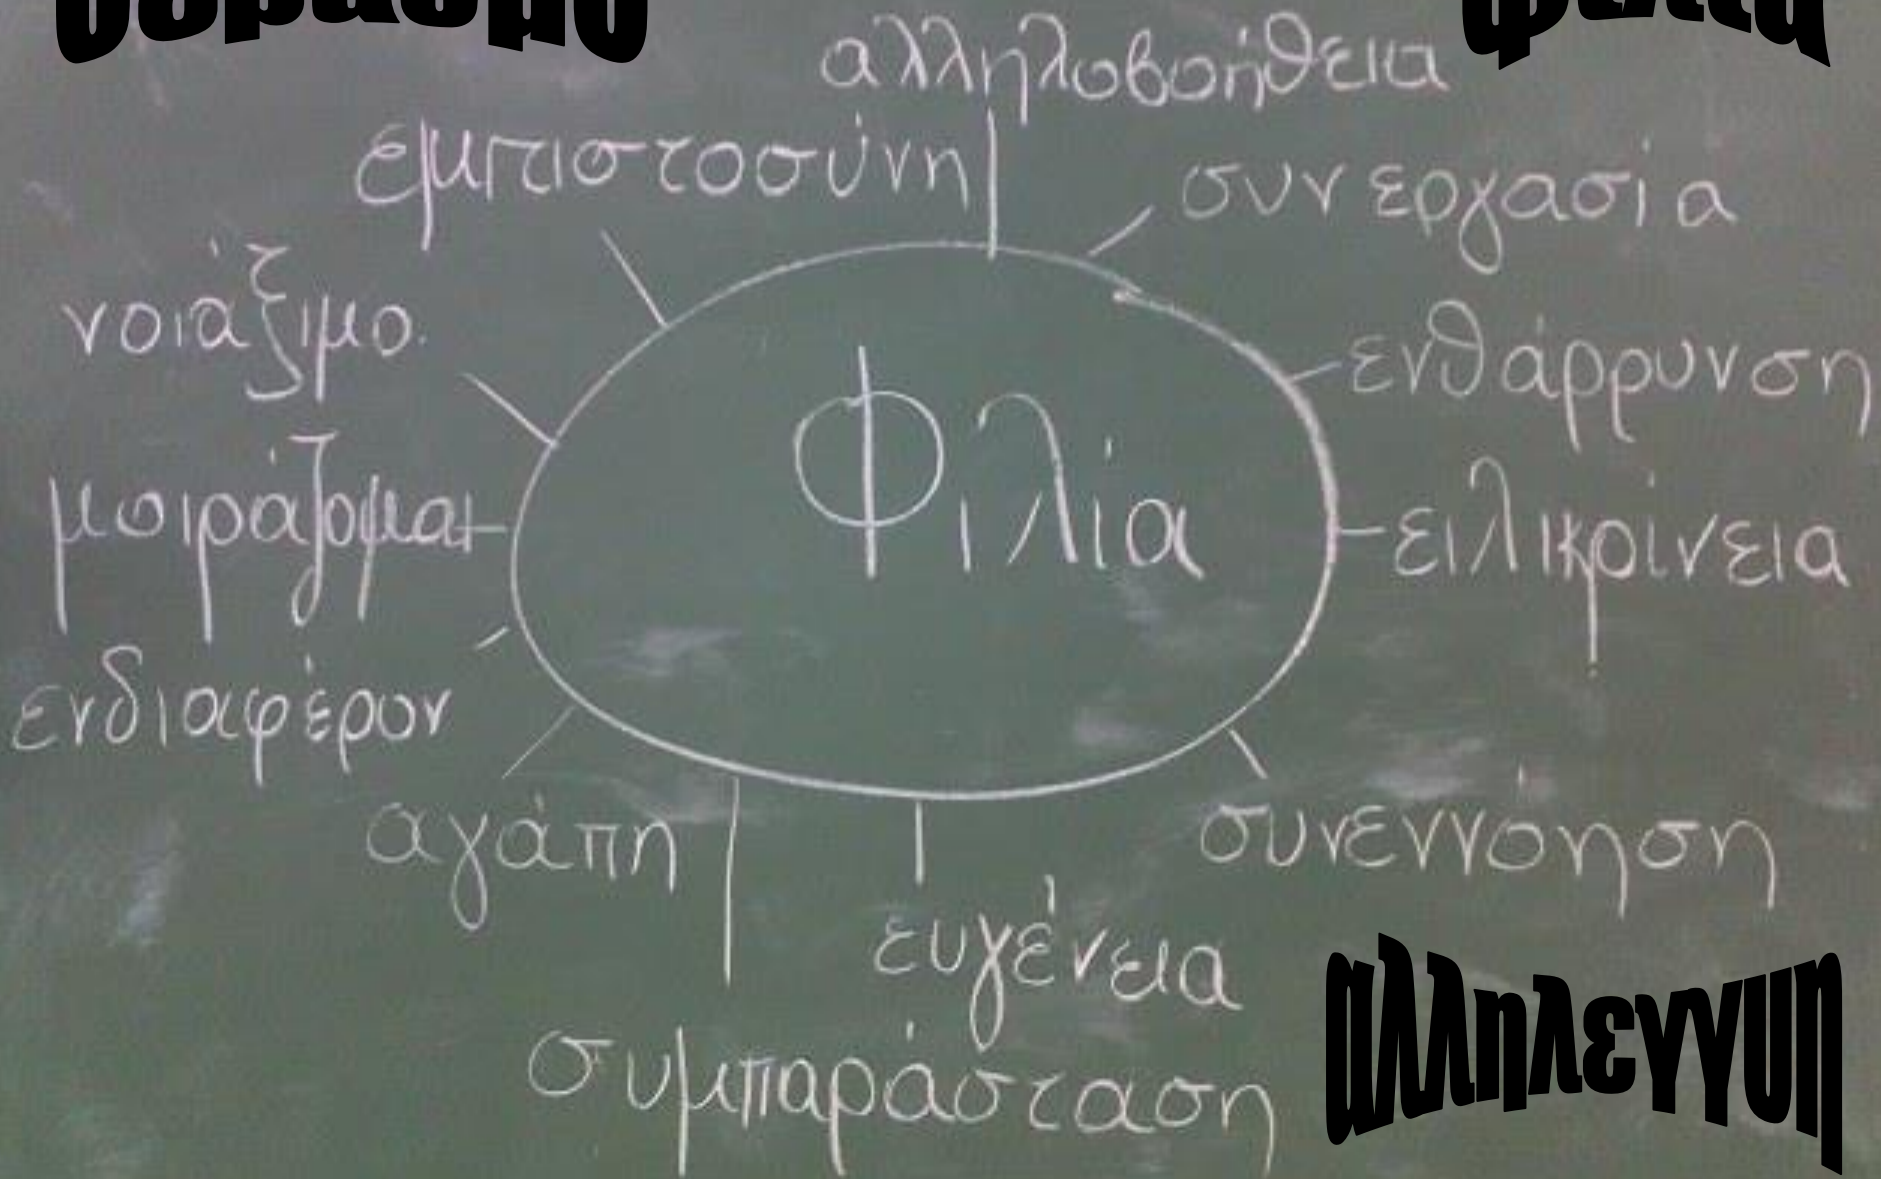 σεβασμό
φιλία
αλληλοβοήθεια
εμπιστοσύνη
συνεργασία
νοιάξιμο.
ενθάρρυνση
Φιλία
μοιράζομαι
ειλικρίνεια
ενδιαφέρον
αγάπη
συνεννόηση
ευγένεια
συμπαράσταση
αλληλεγγυη